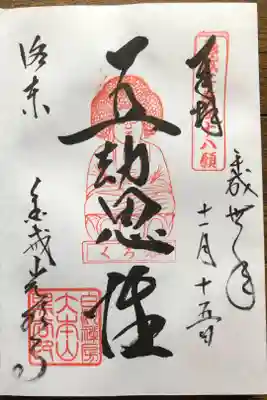 奉拝
平成卅年
十一月十五日
五劫思惟
くろ谷
洛東
金戒光明寺
大本山